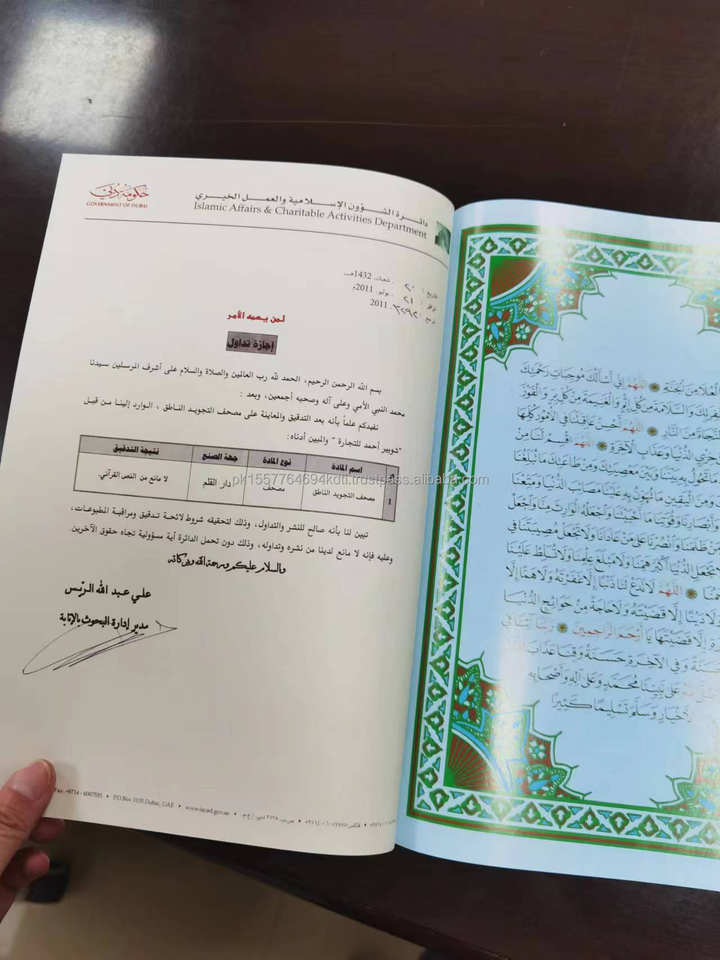 حكومة دبي
GOVERNMENT OF DUBAI
دائرة الشؤون الإسلامية والعمل الخيري
Islamic Affairs & Charitable Activities Department
شعبان 1432هـ
٢١ يوليو 2011م
2011
لمن يهمه الأمر
إجازة تداول
بسم الله الرحمن الرحيم، الحمد لله رب العالمين والصلاة والسلام على أشرف المرسلين سيدنا
محمد النبي الأمي وعلى آله وصحبه أجمعين، وبعد :
نفيدكم علماً بأنه بعد التدقيق والمعاينة على مصحف التجويد الناطق ، الوارد إلينا من قبل
"شوبير أحمد للتجارة" والمبين أدناه:
اسم المادة نوع المادة جهة الصنع نتيجة التدقيق
1 مصحف التجويد الناطق مصحف دار القلم لا مانع من النص القرآني.
تبين لنا بأنه صالح للنشر والتداول، وذلك لتحقيقه شروط لائحة تدقيق ومراقبة المطبوعات،
وعليه فإنه لا مانع لدينا من نشره وتداوله، وذلك دون تحمل الدائرة أية مسؤولية تجاه حقوق الآخرين.
والسلام عليكم ورحمة الله وبركاته
علي عبد الله الريس
مدير إدارة البحوث بالإنابة
P.O.Box 3135 Dubai, UAE • www.iacad.gov.ae
اللهم إني أسألك موجبات رحمتك
والسلامة من كل إثم والغنيمة من كل بر والفوز
النجاة من النار اللهم أحسن عاقبتنا في الأمور كلها
الدنيا وعذاب الآخرة اللهم اقسم لنا من
معصيتك ومن طاعتك ما تبلغنا
اليقين ما تهون به علينا مصائب الدنيا ومتعنا
وأبصارنا وقوتنا ما أحييتنا واجعله الوارث منا واجعل
ظلمنا وانصرنا على من عادانا ولا تجعل مصيبتنا في
تجعل الدنيا أكبر همنا ولا مبلغ علمنا ولا تسلط علينا
اللهم لا تدع لنا ذنبا إلا غفرته ولا هما إلا
دينا إلا قضيته ولا حاجة من حوائج الدنيا
إلا قضيتها يا أرحم الراحمين ربنا آتنا في
وفي الآخرة حسنة وقنا عذاب
على نبينا محمد وعلى آله وأصحابه
الأخيار وسلم تسليما كثيرا
pk1557764694kdti.trustpass.alibaba.com